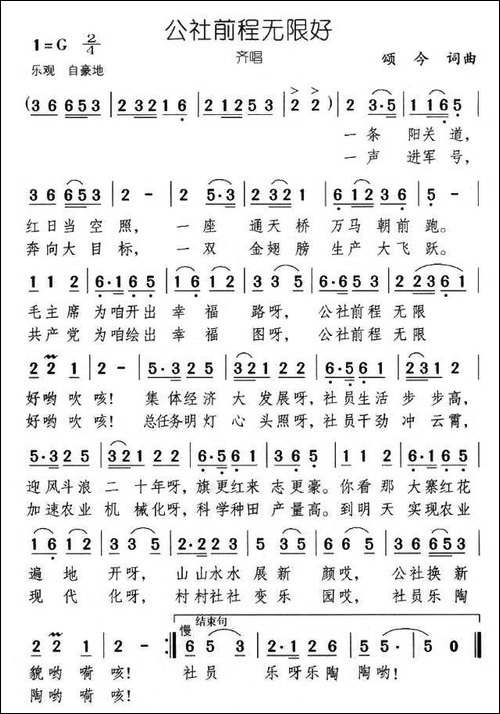 公社前程无限好
1=G 2/4
齐唱
颂今 词曲
乐观 自豪地
(3 6 6 5 3 | 2 3 2 1 6 | 5 6 1 2 3 1 | 2 2) | 2 3·5 | 1 1 6 5 |
一条 阳关道,
一声 进军号,
3 6 6 5 3 | 2 - | 2 5·3 | 2 3 2 1 | 6 1 2 3 6 | 5 - |
红日当空照, 一座 通天桥 万马朝前跑。
奔向大目标, 一双 金翅膀 生产大飞跃。
1 1 2 | 6·1 6 5 | 1 6 1 2 | 3 3 5 | 6·1 6 5 | 2 2 3 6 1 |
毛主席 为咱开出 幸福 路呀, 公社前程 无限
共产党 为咱绘出 幸福 图呀, 公社前程 无限
2 2 1 | 2 - | 5·3 2 5 | 3 2 1 2 2 | 6·5 6 1 | 5 6 1 2 |
好哟吹咳! 集体经济 大发展呀, 社员生活 步步高,
好哟吹咳! 总任务明灯 心头照呀, 社员干劲 冲云霄,
5·3 2 5 | 3 2 1 2 2 | 6·5 6 1 | 5 6 1 2 | 3·5 6 1 | 6 5 3 5 |
迎风斗浪 二十年呀, 旗更红来 志更豪。你看那 大寨红花
加速农业 机械化呀, 科学种田 产量高。到明天 实现农业
1 6 1 2 | 1 2 | 2·2 2 3 | 5 5 2 | 3 2 3 | 3 6 6 5 3 |
遍地 开呀, 山山水水 展新 颜哎, 公社换新
现代 化呀, 村村社社 变乐 园哎, 社员乐陶
结束句
慢
2 2 1 | 2 - :‖ 6 5 3 | 2·1 2 6 | 5 5 | 5 - ‖
貌哟嗬咳! 社员 乐呀乐陶 陶哟!
陶哟嗬咳!